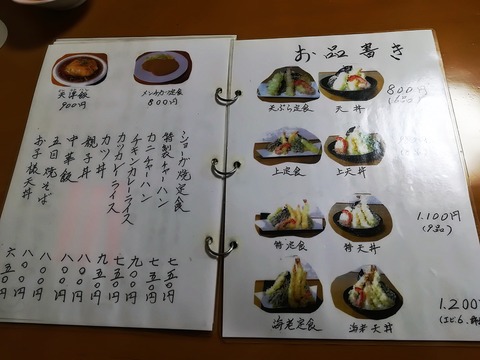 天津飯
900円
メンチカツ定食
800円
ショーガ焼定食 七五〇円
特製チャーハン 七五〇円
カニチャーハン 九五〇円
チキンカレーライス 七五〇円
カツカレーライス 九五〇円
カツ丼 八〇〇円
親子丼 八〇〇円
中華飯 八〇〇円
五目焼そば 八五〇円
お子様天丼 六五〇円
お品書き
天ぷら定食
天丼
800円
上定食
上天丼
特定食
特天丼
1.100円
(9品)
海老定食
海老天丼
1.200